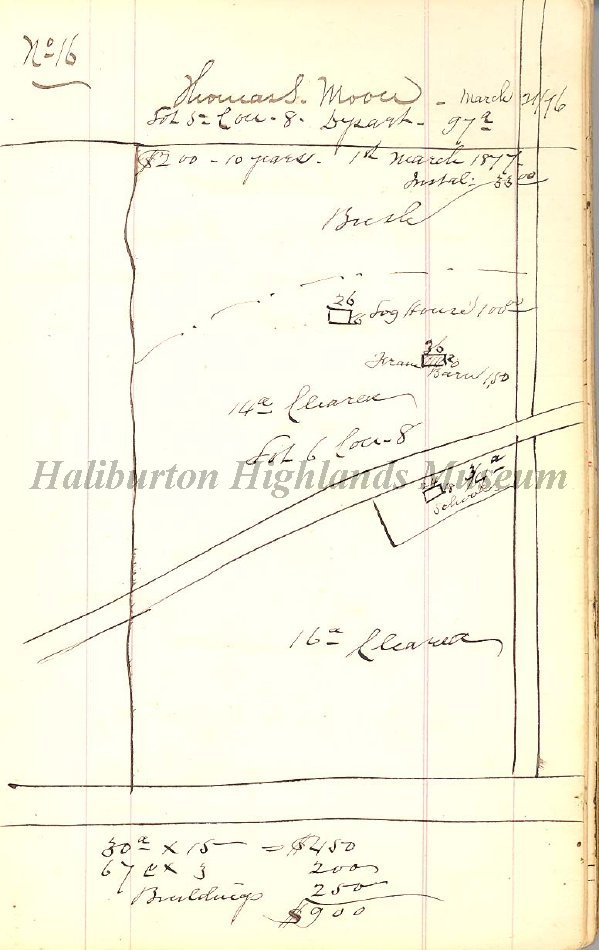 No 16
Thomas S. Moore - March 21/76
Lot 5 Con - 8 - Dysart - 97a
$200 - 10 years - 1st March 1877
Instal: 33 00
Bush
26
Log House 100
36
Fram
Barn 150
14a Cleared
Lot 6 Con - 8
Haliburton Highlands Museum
3/4 a
School
16a Cleared
30a x 15 = $450
67 a x 3 200
Buildings 250
$900